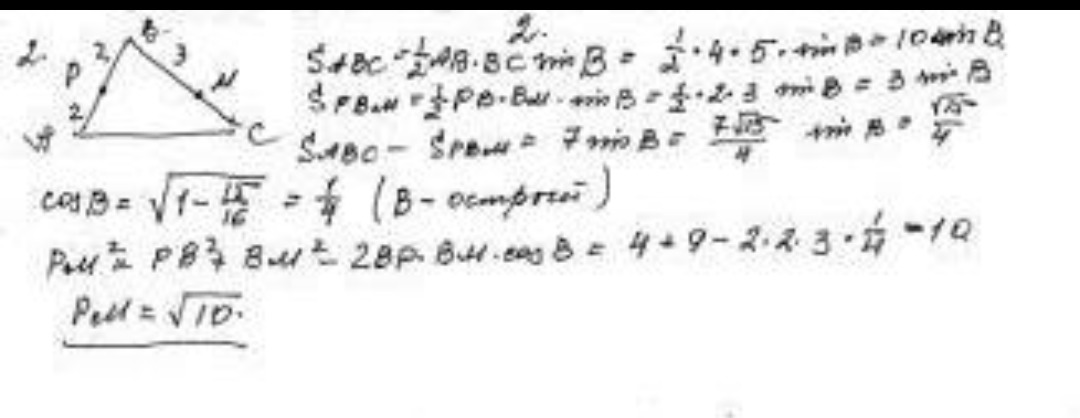 2.
2.
B
P 2 3 M
2
A C
S ABC = 1/2 AB · BC sin B = 1/2 · 4 · 5 · sin B = 10 sin B
S PBM = 1/2 PB · BM · sin B = 1/2 · 2 · 3 sin B = 3 sin B
S ABC − S PBM = 7 sin B = 7√15/4 sin B = √15/4
cos B = √(1 − 15/16) = 1/4 (B - острый)
PM² = PB² + BM² − 2BP · BM · cos B = 4 + 9 − 2 · 2 · 3 · 1/4 = 10
PM = √10.